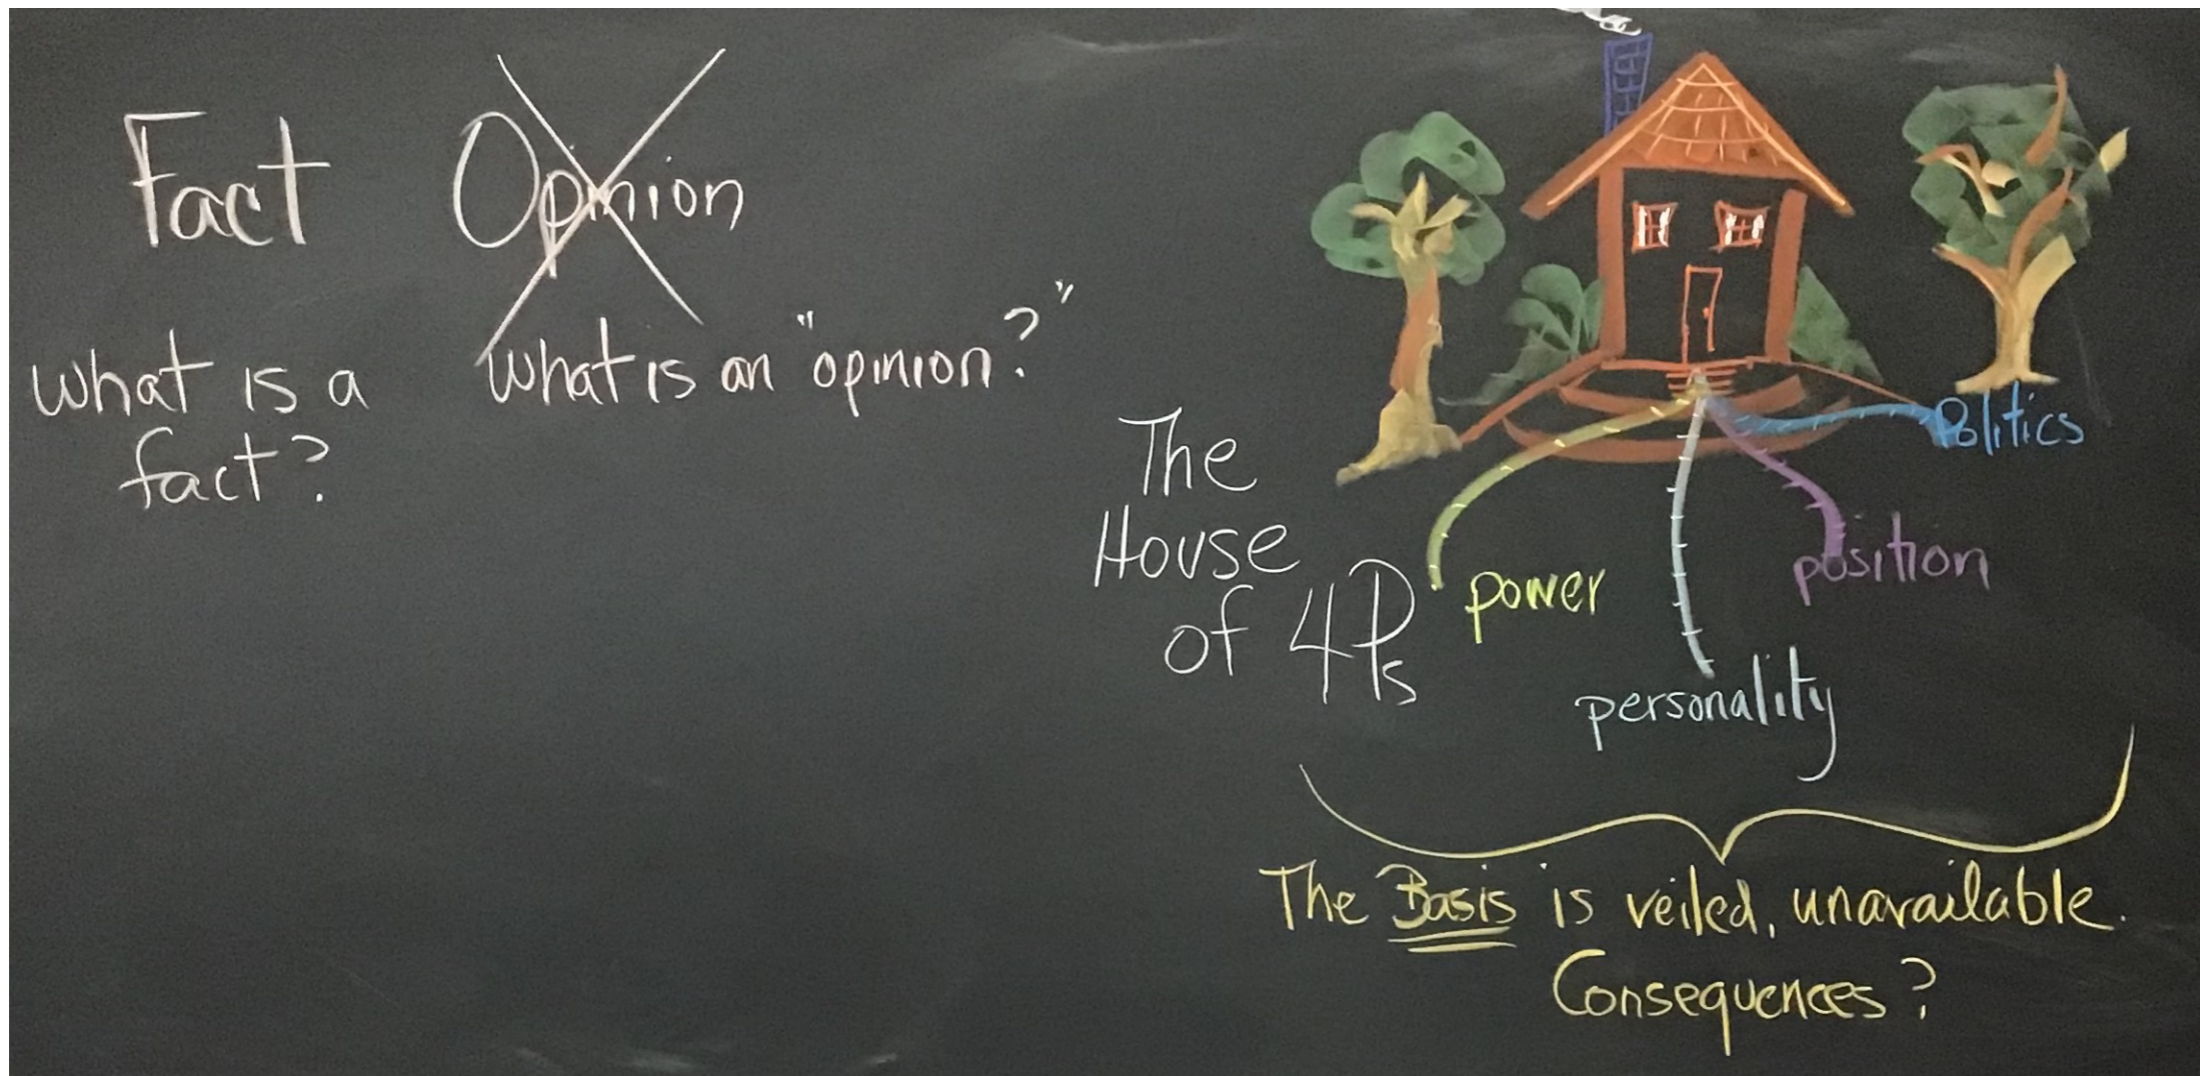 Fact
Opinion
What is a
fact?
What is an "opinion?"
The
House
of 4Ps
Politics
position
power
personality
The Basis is veiled, unavailable.
Consequences?